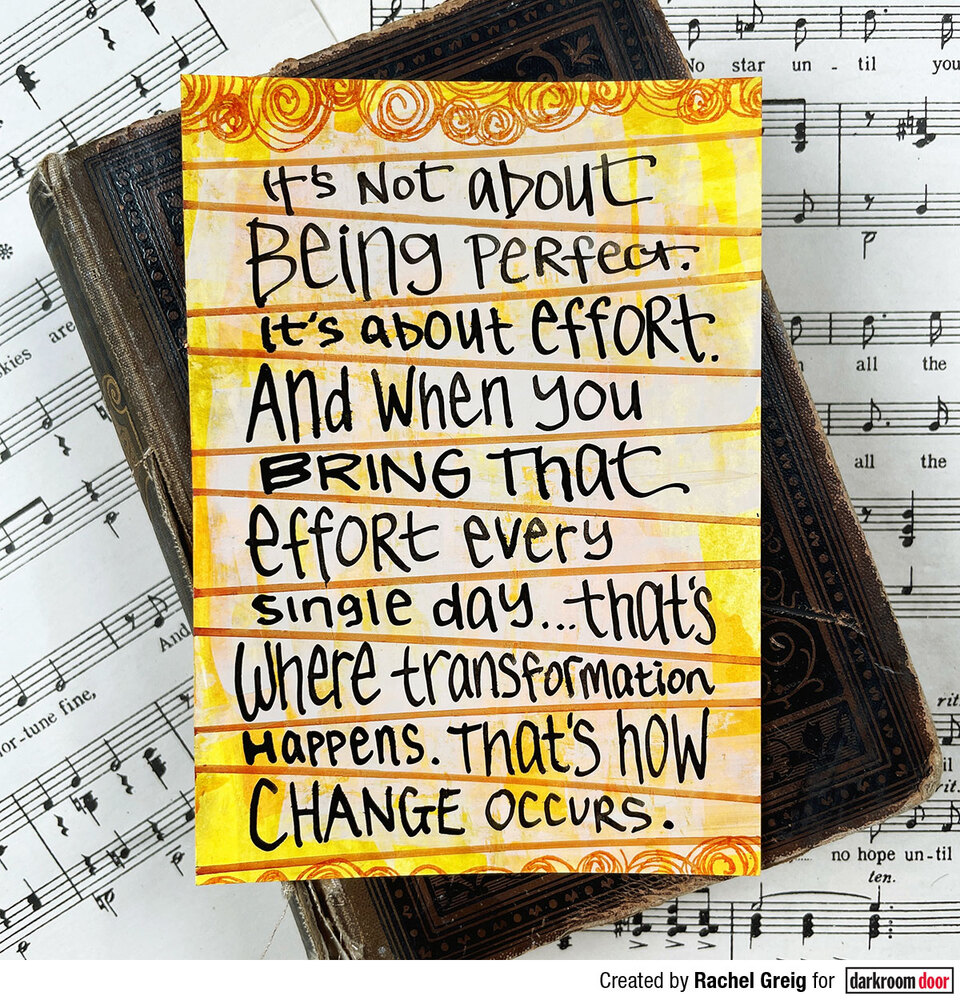 It's not about
Being perfect.
It's about effort.
And when you
BRING that
effort every
single day... that's
where transformation
Happens. That's how
CHANGE OCCURS.
No star un - til you
kies are
all the
all the
And
or-tune fine,
rit.
til
rit.
no hope un-til
ten.
Created by Rachel Greig for darkroom door